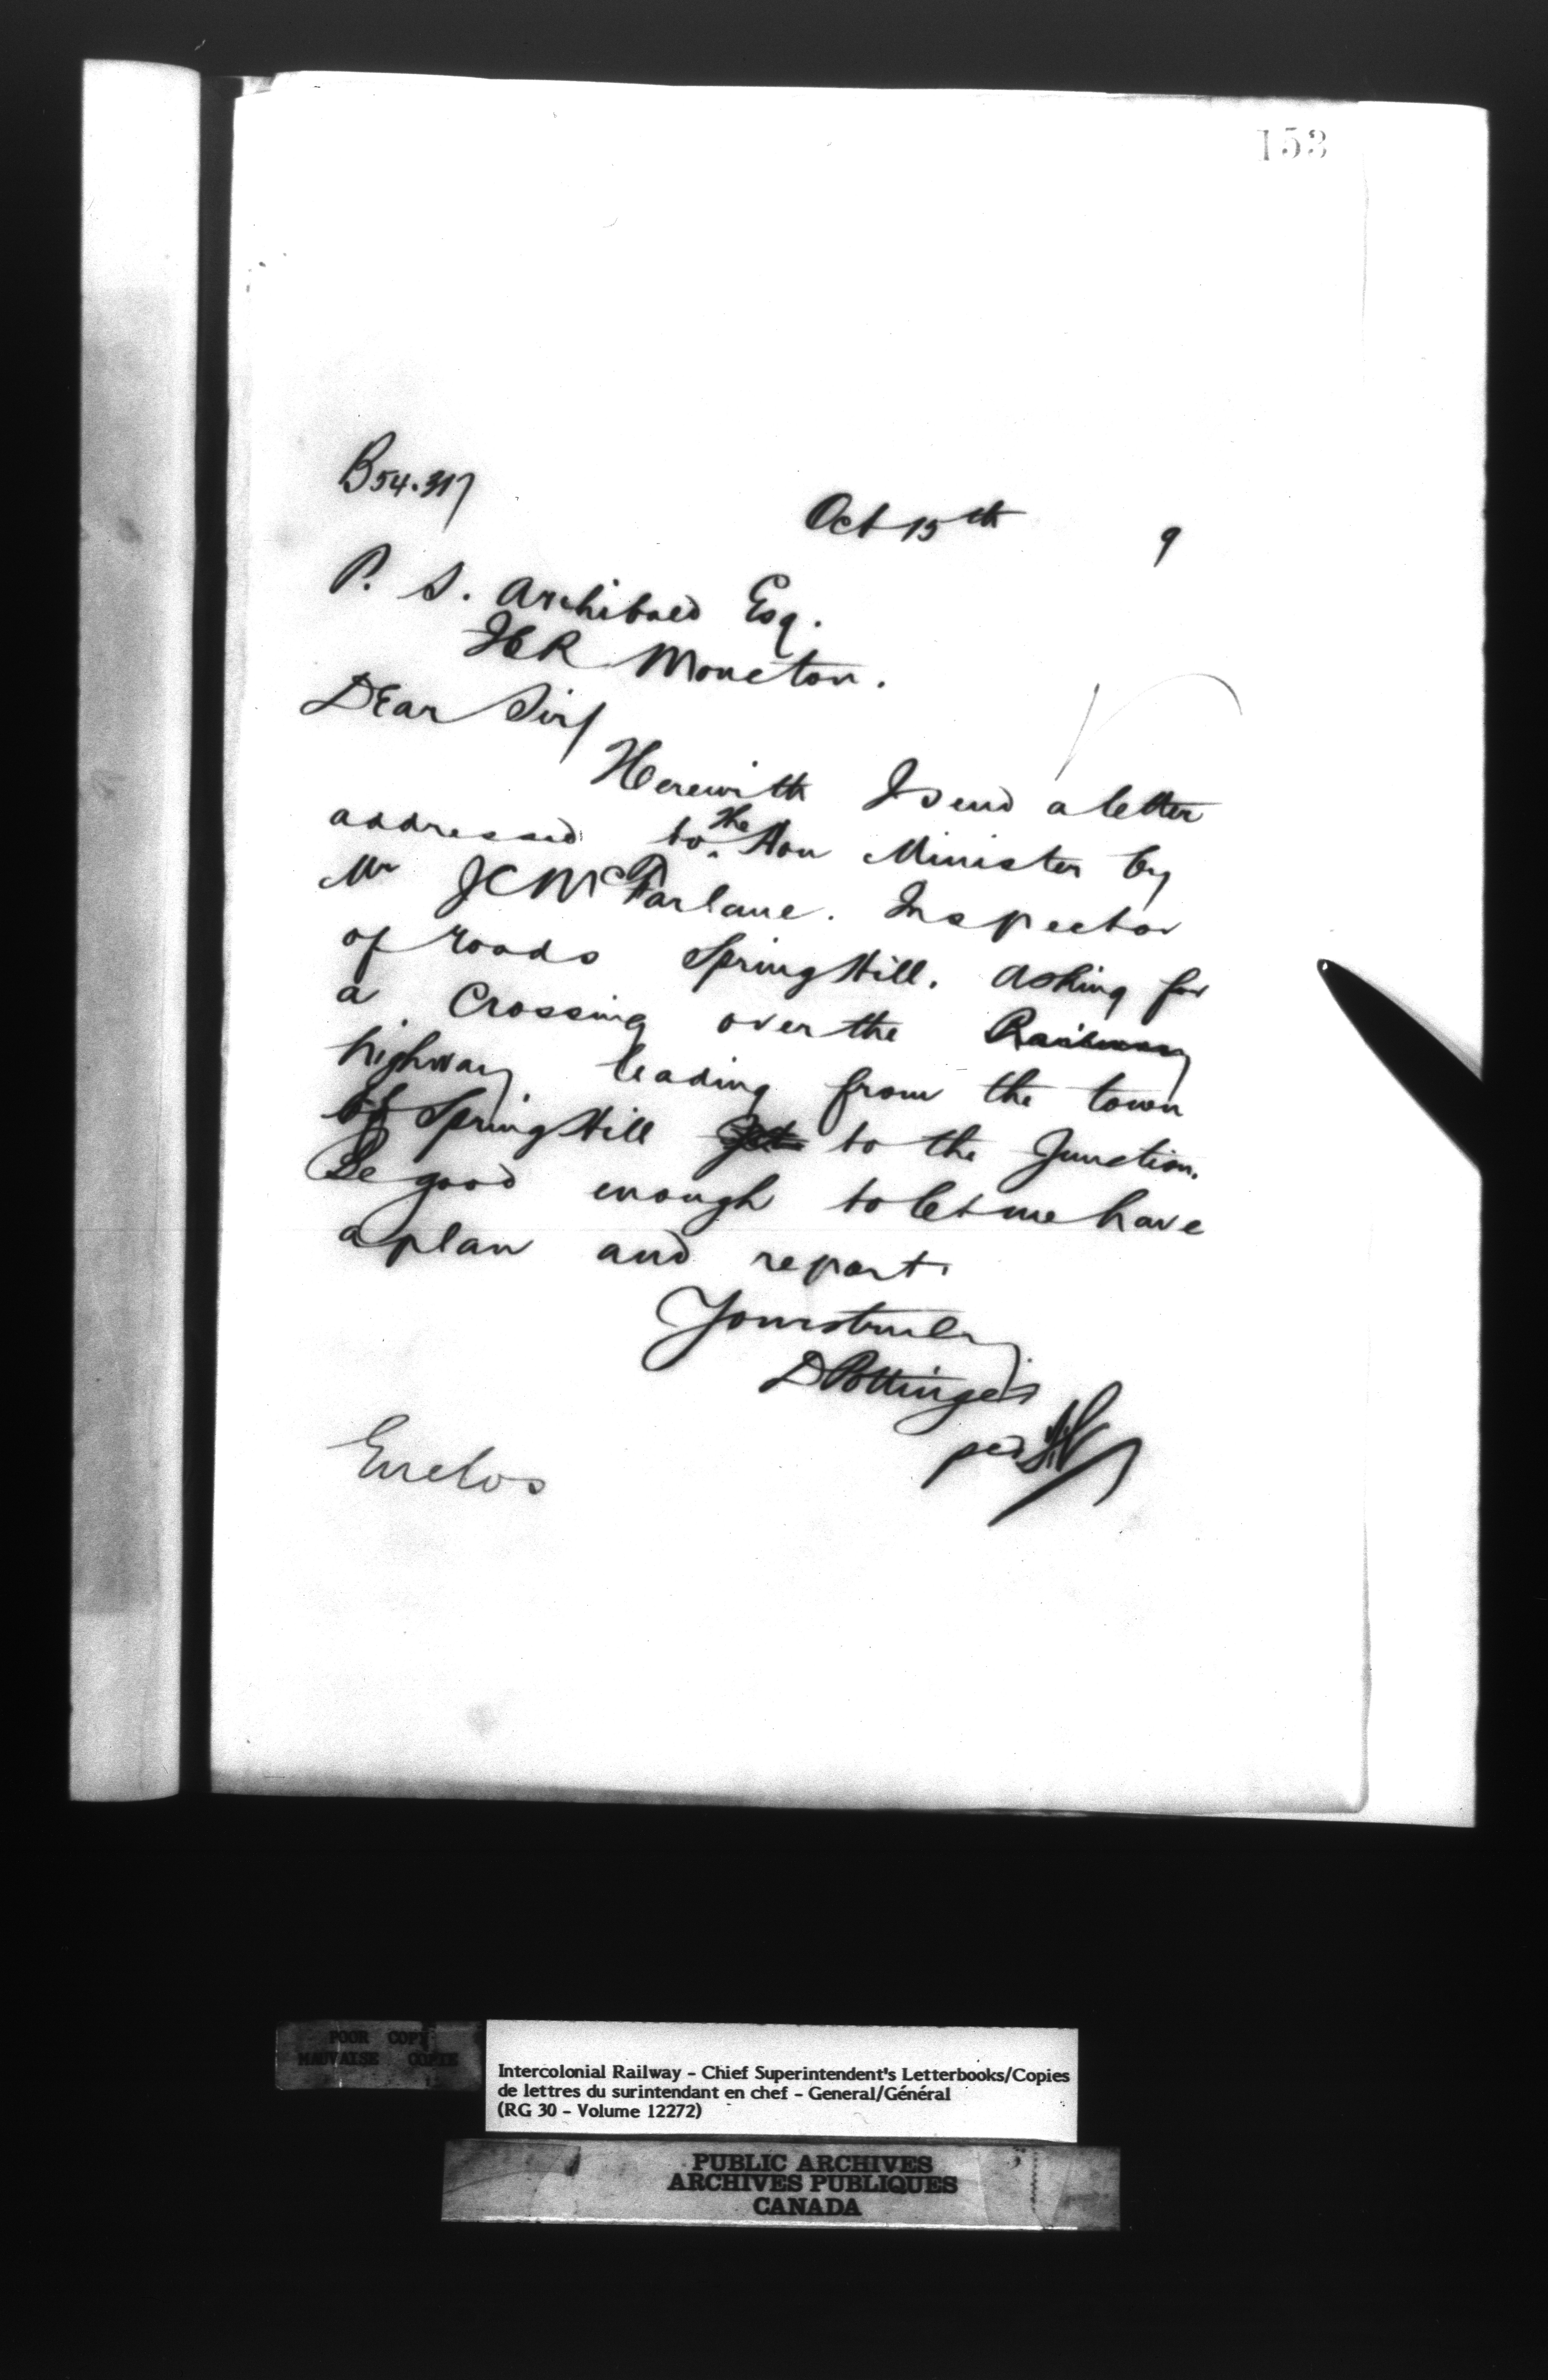 153
B54.317
Oct 15th 9
P. S. Archibald Esq.
ICR Moncton.
Dear Sir/
Herewith I send a letter
addressed to the Hon Minister by
Mr J C McFarlane. Inspector
of roads Spring Hill. asking for
a Crossing over the Railway
highway leading from the town
of Spring Hill to the Junction.
Be good enough to let me have
a plan and report.
Yours truly
D Pottinger
per
Enclos
POOR COPY
MAUVAISE COPIE
Intercolonial Railway - Chief Superintendent's Letterbooks/Copies
de lettres du surintendant en chef - General/Général
(RG 30 - Volume 12272)
PUBLIC ARCHIVES
ARCHIVES PUBLIQUES
CANADA